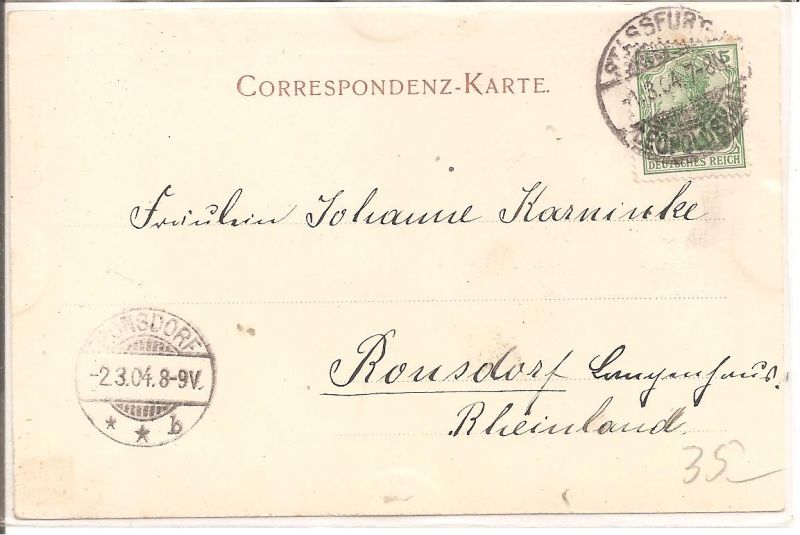 CORRESPONDENZ-KARTE.
STASSFURT
-1.3.04.7-8
LEOPOLDS
5
DEUTSCHES REICH
Fräulein Johanne Karnincke
RONSDORF
-2.3.04.8-9V.
* * b
Ronsdorf Langenhaus.
Rheinland
35